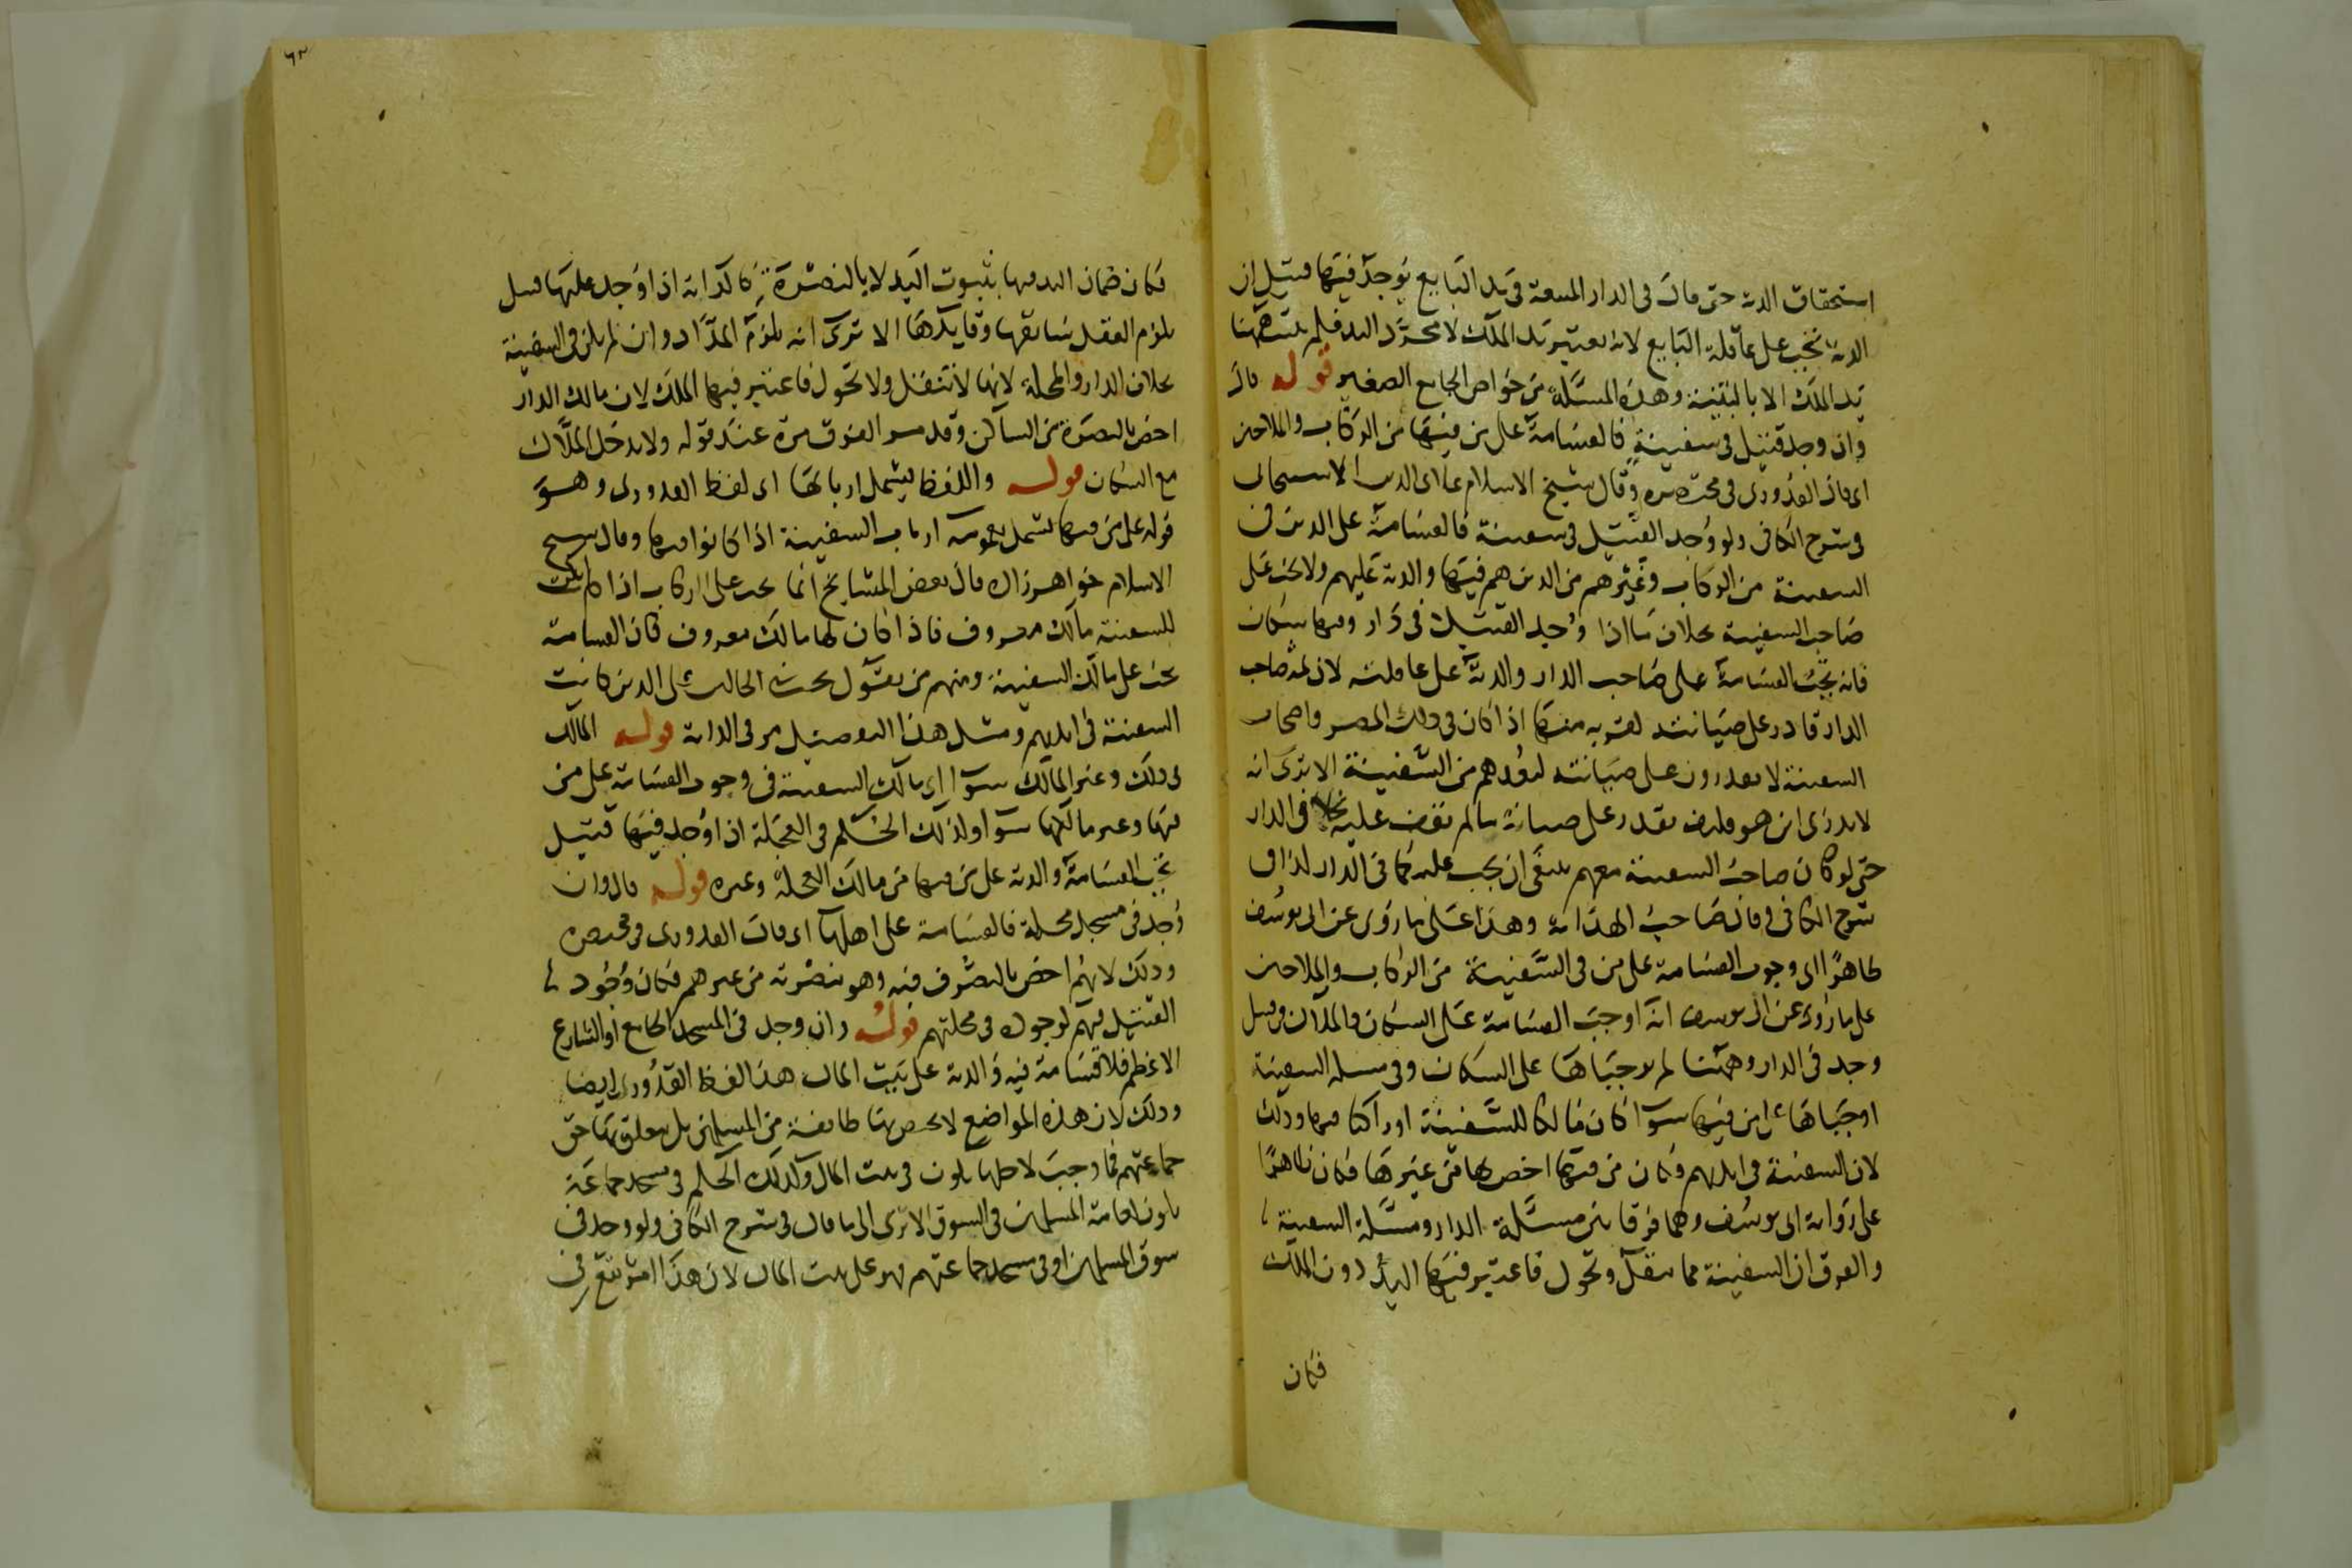 استحقاق الدية حتى قال في الدار المبيعة في يد البايع يوجد فيها قتيل ان
الدية تجب على عاقلة البايع لانه يعتبر يد الملك لا مجرد اليد فلم يثبت هنا
يد الملك الا بالبينة وهذه المسئلة من خواص الجامع الصغير قوله قال
وان وجد قتيل في سفينة فالقسامة على من فيها من الركاب والملاحين
اي قال القدوري في مختصره وقال شيخ الاسلام علا الدين الاسبيجابي
في شرح الكافي ولو وجد القتيل في سفينة فالقسامة على الذين في
السفينة من الركاب وغيرهم من الذين هم فيها والدية عليهم ولا تجب على
صاحب السفينة بخلاف ما اذا وجد القتيل في دار وفيها سكان
فانه تجب القسامة على صاحب الدار والدية على عاقلته لان ثمه صاحب
الدار قادر على صيانته لقربه منها اذا كان في ذلك المصر واصحاب
السفينة لا يقدرون على صيانته لبعدهم من السفينة الا يرى انه
لا يدري اين هو فكيف يقدر على صيانة ما لم يقف عليه بخلاف الدار
حتى لو كان صاحب السفينة معهم ينبغي ان يجب عليه كما في الدار كذا في
شرح الكافي وقال صاحب الهداية وهذا على ما روي عن ابي يوسف
ظاهر اي وجوب القسامة على من في السفينة من الركاب والملاحين
على ما روي عن ابي يوسف انه اوجب القسامة على السكان والملاك في قتيل
وجد في الدار وهما لم يوجباها على السكان وفي مسئلة السفينة
اوجباها على من فيها سوا كان مالكا للسفينة او راكبا فيها وذلك
لان السفينة في ايديهم وكان من فيها اخص بها من غيرها فكان ظاهرا
على رواية ابي يوسف وهما فرقا بين مسئلة الدار ومسئلة السفينة
والفرق ان السفينة مما ينقل وتحول فاعتبر فيها اليد دون الملك
فكان
٦٢
فكان ضمان اليد فيها بثبوت اليد لا بالنصرة كالدابة اذا وجد عليها قتيل
يلزم العقل سائقها وقايدها الا ترى انه يلزم المداد وان لم يكن في السفينة
بخلاف الدار والمحلة لانها لا تنقل ولا تحول فاعتبر فيها الملك لان مالك الدار
اخص بالنصرة من الساكن وقد مر الفرق مرة عند قوله ولا يدخل الملاك
مع السكان قوله واللفظ يشمل اربابها اي لفظ القدوري وهو
قوله على من فيها يشمل بعمومه ارباب السفينة اذا كانوا فيها وقال شيخ
الاسلام خواهر زاده قال بعض المشايخ انما يجب على الركاب اذا لم يكن
للسفينة مالك معروف فاذا كان لها مالك معروف كان القسامة
تجب على مالك السفينة ومنهم من يقول تجب في الحالين على الذين كانت
السفينة في ايديهم ومثل هذا التفصيل مر في الدابة قوله المالك
في ذلك وغير المالك سوا اي مالك السفينة في وجوب القسامة على من
فيها وغير مالكها سوا وكذلك الحكم في العجلة اذا وجد فيها قتيل
تجب القسامة والدية على من فيها من مالك العجلة وغيره قوله قال وان
وجد في مسجد محلة فالقسامة على اهلها اي قال القدوري في مختصره
وذلك لانهم اخص بالتصرف فيه وهو بنصرته من غيرهم فكان وجود
القتيل فيهم لوجوده في محلتهم قوله وان وجد في المسجد الجامع او الشارع
الاعظم فلا قسامة فيه والدية على بيت المال هذا لفظ القدوري ايضا
وذلك لان هذه المواضع لا يختص بها طايفة من المسلمين بل يتعلق بها حق
جماعتهم فما وجب لاجلها يكون في بيت المال وكذلك الحكم في مسجد جماعة
يكون لعامة المسلمين في السوق الا ترى الى ما قال في شرح الكافي ولو وجد في
سوق المسلمين او في مسجد جماعتهم فهو على بيت المال لان هذا امر يقع في